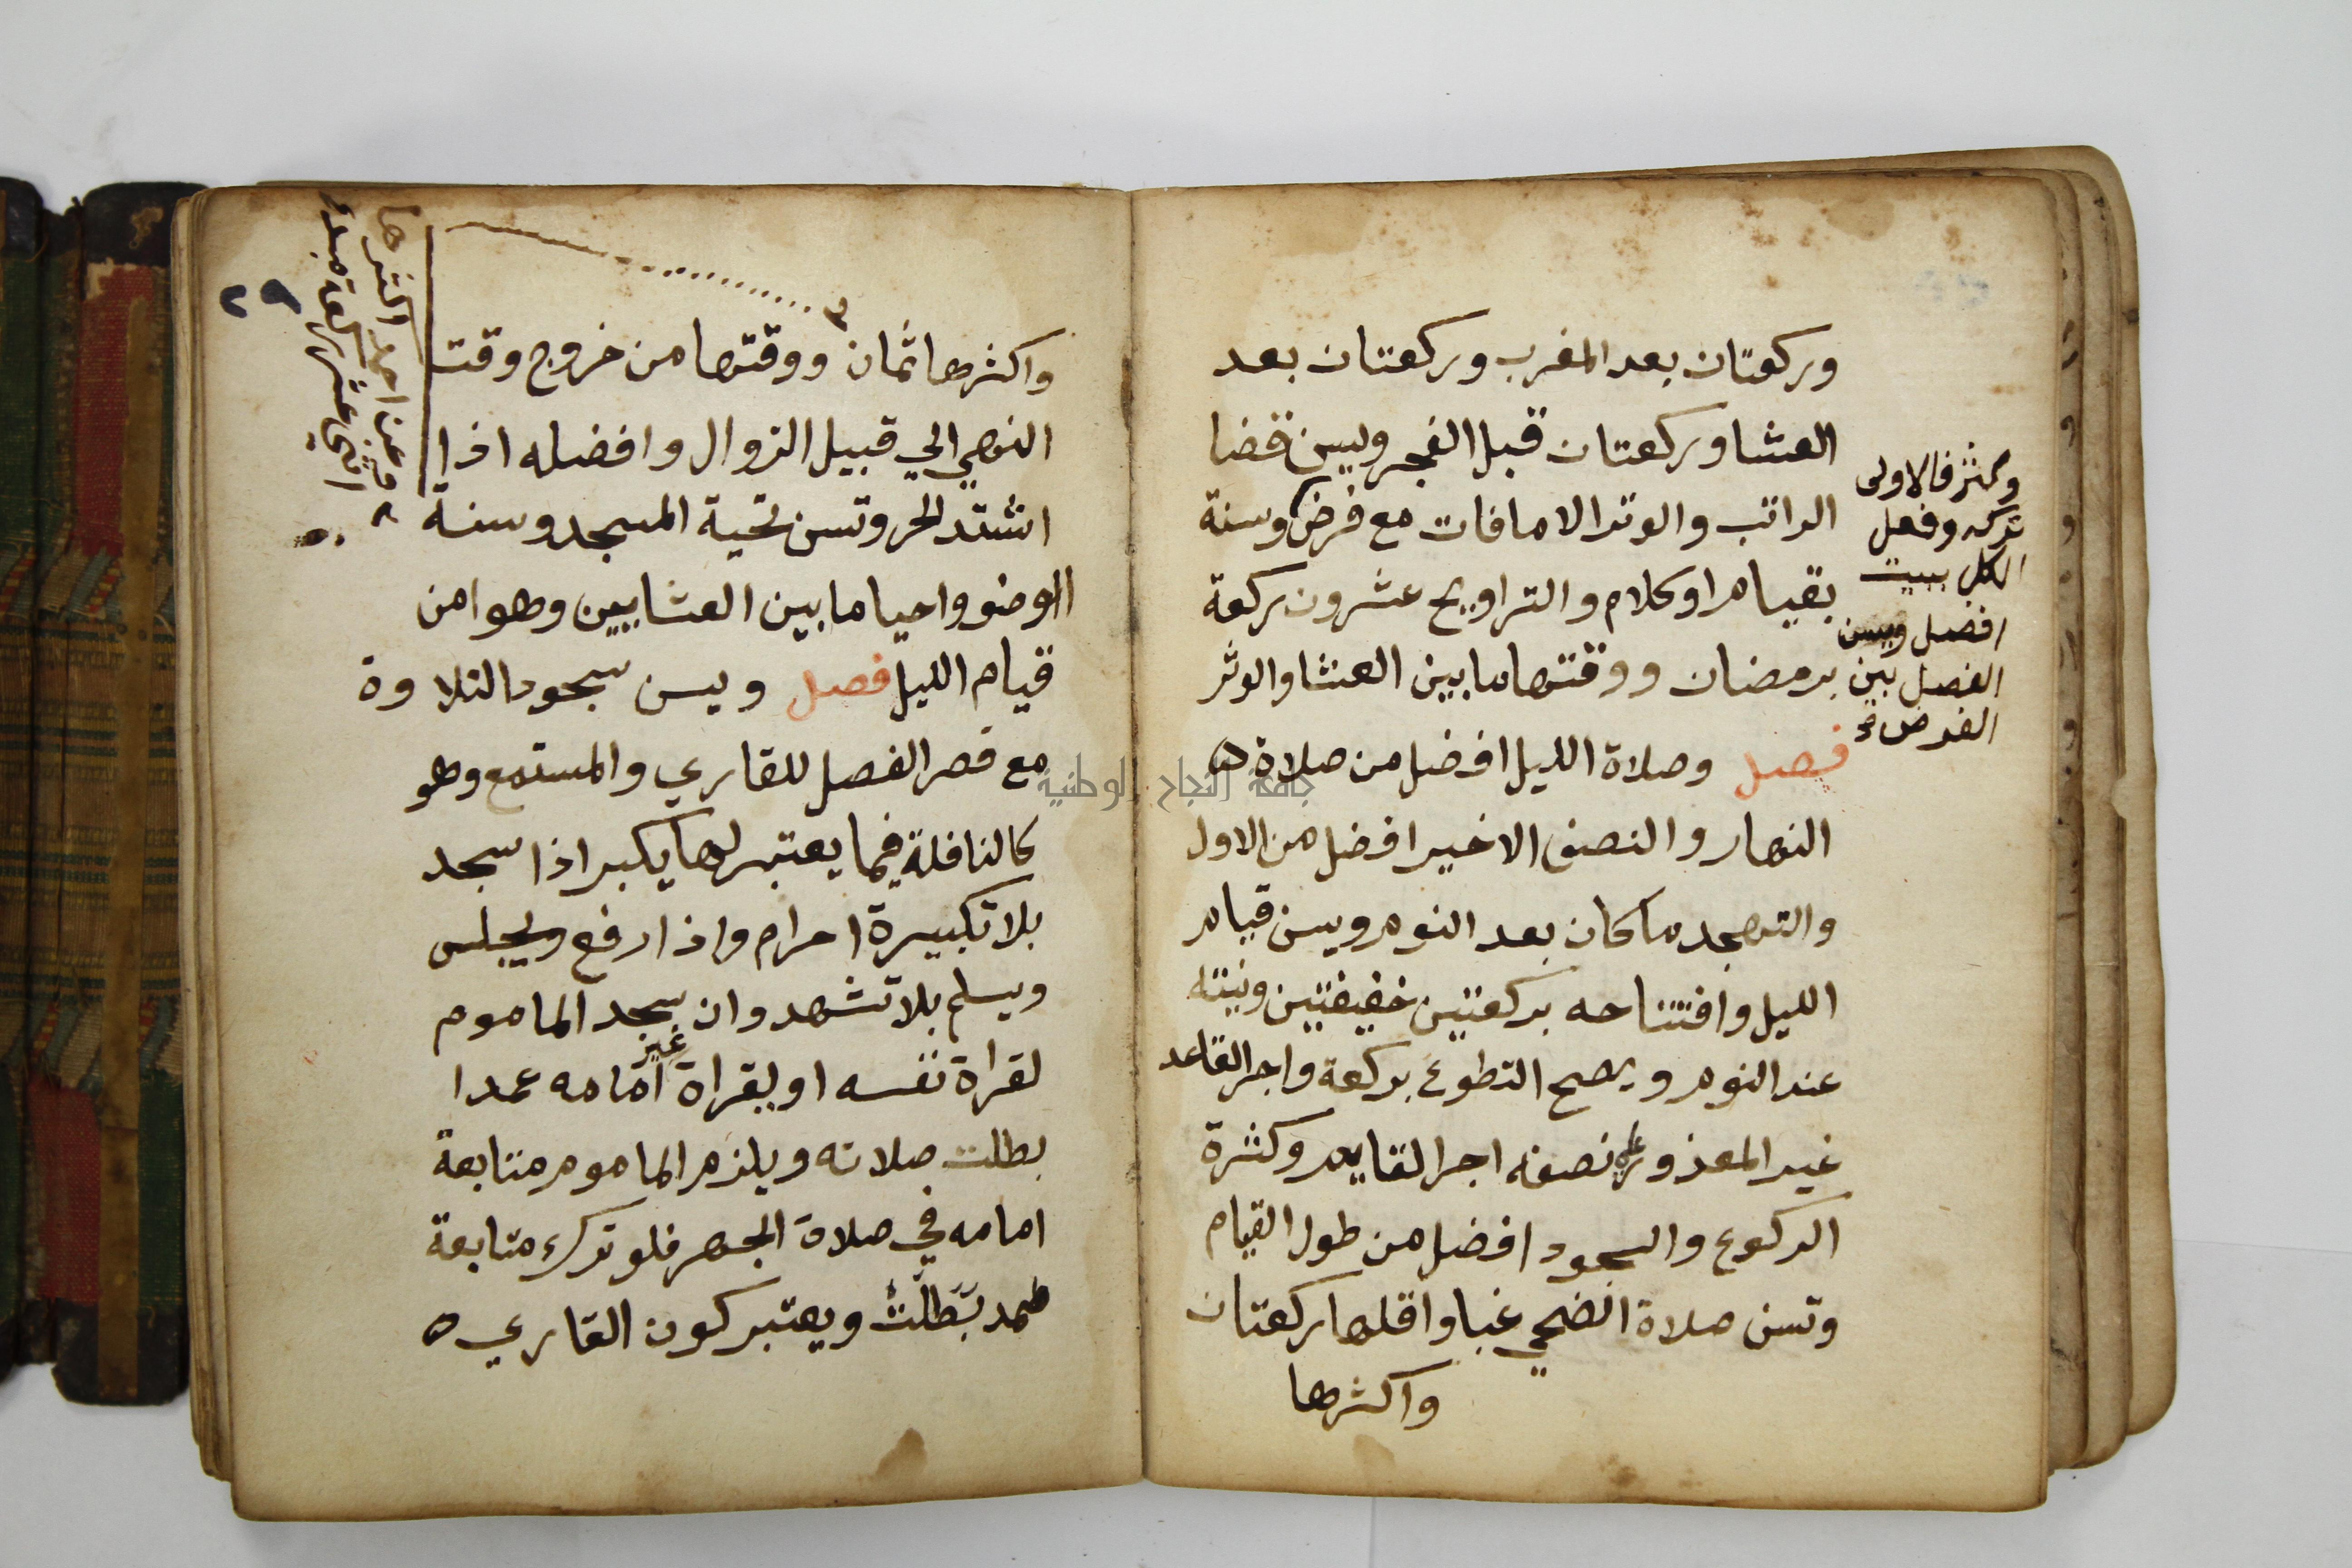 وركعتان بعد المغرب وركعتان بعد
العشا وركعتان قبل الفجر ويسن قضا
الراتب والوتر الا ما فات مع فرض وسنة
بقيام او كلام والتراويح عشرون ركعة
برمضان ووقتها ما بين العشا والوتر
فصل وصلاة الليل افضل من صلاة
النهار والنصف الاخير افضل من الاول
والتهجد ما كان بعد النوم ويسن قيام
الليل وافتتاحه بركعتين خفيفتين ونيته
عند النوم ويصح التطوع بركعة واجر القاعد
غير المعذور على نصف اجر القايم وكثرة
الركوع والسجود افضل من طول القيام
وتسن صلاة الضحي غبا واقلها ركعتان
واكثرها
وكثر فالاولى
تركه وفعل
الكل ببيت
افضل ويسن
الفصل بين
الفرض
جامعة النجاح الوطنية
٢٩
واكثرها ثمان ووقتها من خروج وقت
النهي الي قبيل الزوال وافضله اذا
اشتد الحر وتسن تحية المسجد وسنة
الوضو واحيا ما بين العشايين وهو من
قيام الليل فصل ويسن سجود التلاوة
مع قصر الفصل للقاري والمستمع وهو
كالنافلة فيما يعتبر لها يكبر اذا سجد
بلا تكبيرة احرام واذا رفع ويجلس
ويسلم بلا تشهد وان سجد الماموم
لقراة نفسه او لقراة غير امامه عمدا
بطلت صلاته ويلزم الماموم متابعة
امامه في صلاة الجهر فلو ترك متابعة
عمد بطلت ويعتبر كون القاري
وعن احمد اكثرها
اثني عشر ركعة